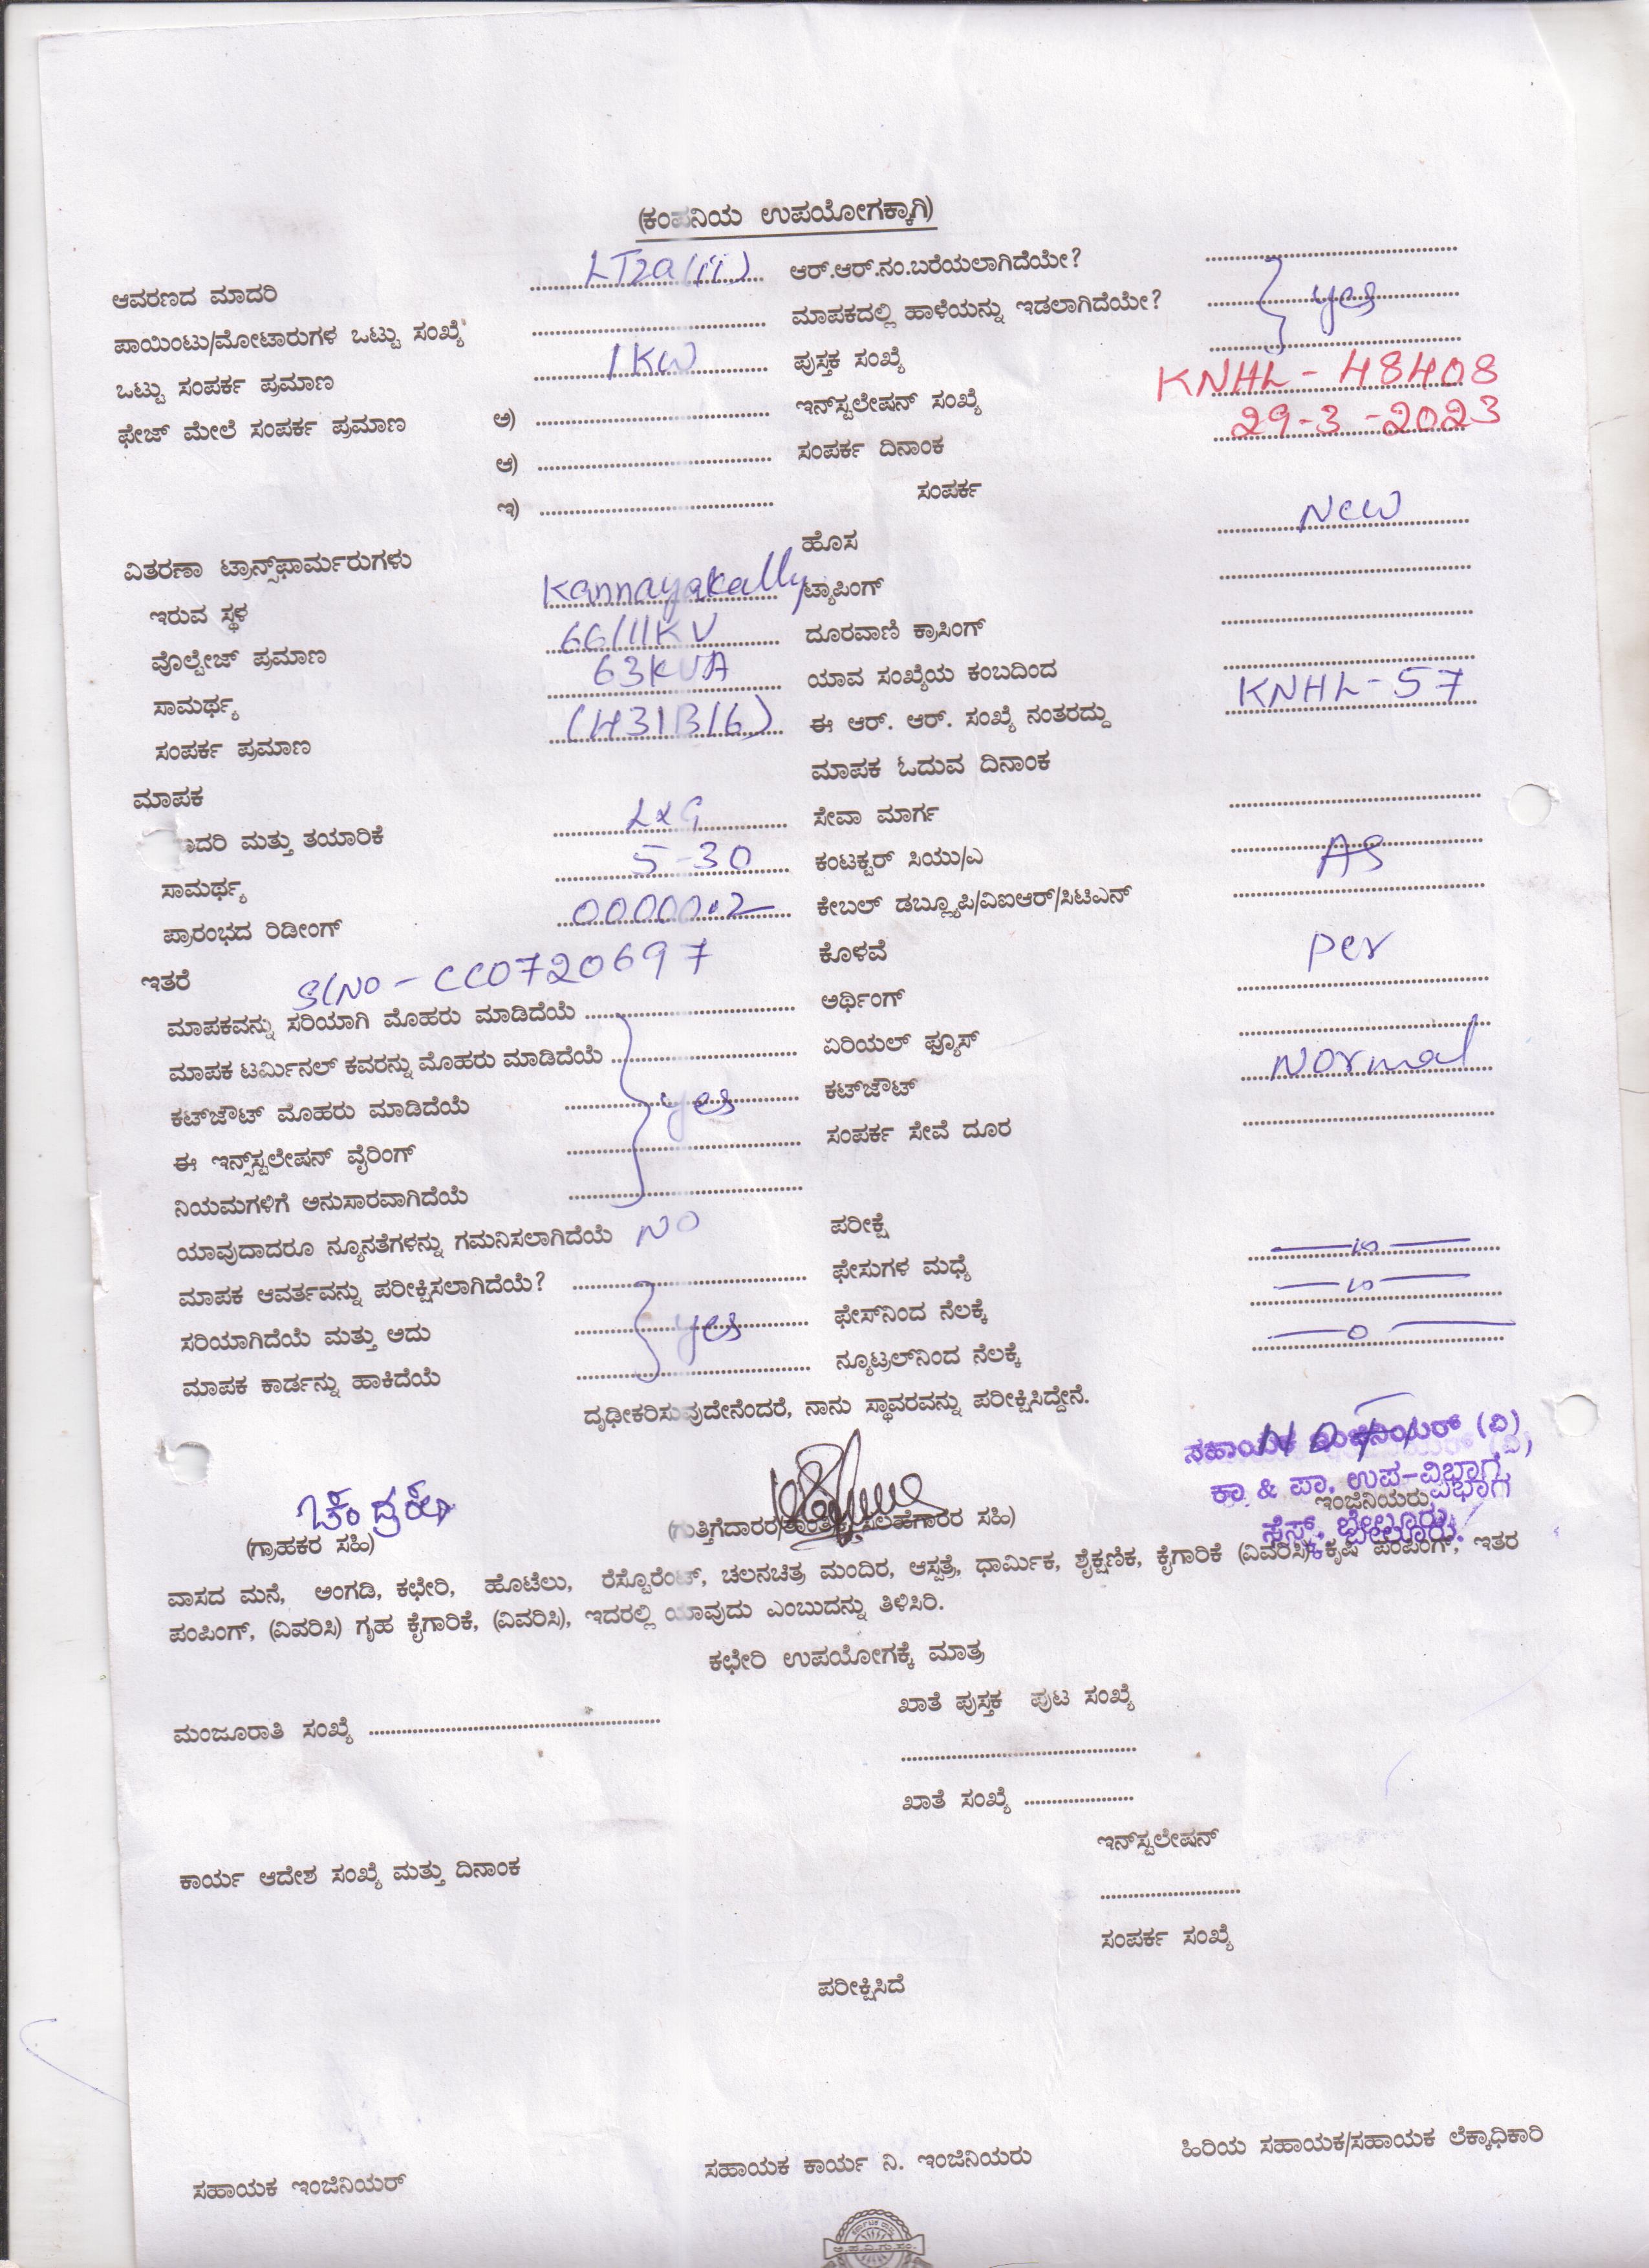 (ಕಂಪನಿಯ ಉಪಯೋಗಕ್ಕಾಗಿ)
ಆವರಣದ ಮಾದರಿ LT2a(ii) ಆರ್.ಆರ್.ನಂ.ಬರೆಯಲಾಗಿದೆಯೇ?
ಪಾಯಿಂಟು/ಮೋಟಾರುಗಳ ಒಟ್ಟು ಸಂಖ್ಯೆ ಮಾಪಕದಲ್ಲಿ ಹಾಳೆಯನ್ನು ಇಡಲಾಗಿದೆಯೇ? yes
ಒಟ್ಟು ಸಂಪರ್ಕ ಪ್ರಮಾಣ 1KW ಪುಸ್ತಕ ಸಂಖ್ಯೆ
ಫೇಜ್ ಮೇಲೆ ಸಂಪರ್ಕ ಪ್ರಮಾಣ ಅ) ಇನ್‌ಸ್ಟಲೇಷನ್ ಸಂಖ್ಯೆ KNHL - 48408
ಆ) ಸಂಪರ್ಕ ದಿನಾಂಕ 29-3-2023
ಇ) ಸಂಪರ್ಕ
ವಿತರಣಾ ಟ್ರಾನ್ಸ್‌ಫಾರ್ಮರುಗಳು ಹೊಸ New
ಇರುವ ಸ್ಥಳ Kannayakally ಟ್ಯಾಪಿಂಗ್
ವೊಲ್ಟೇಜ್ ಪ್ರಮಾಣ 66/11KV ದೂರವಾಣಿ ಕ್ರಾಸಿಂಗ್
ಸಾಮರ್ಥ್ಯ 63KVA ಯಾವ ಸಂಖ್ಯೆಯ ಕಂಬದಿಂದ
ಸಂಪರ್ಕ ಪ್ರಮಾಣ ಈ ಆರ್. ಆರ್. ಸಂಖ್ಯೆ ನಂತರದ್ದು KNHL-57
ಮಾಪಕ ಮಾಪಕ ಓದುವ ದಿನಾಂಕ
ದರಿ ಮತ್ತು ತಯಾರಿಕೆ L&G ಸೇವಾ ಮಾರ್ಗ
ಸಾಮರ್ಥ್ಯ 5-30 ಕಂಟಕ್ಟರ್ ಸಿಯು/ಎ AS
ಪ್ರಾರಂಭದ ರಿಡೀಂಗ್ 000000.2 ಕೇಬಲ್ ಡಬ್ಲ್ಯೂಪಿ/ವಿಐಆರ್/ಸಿಟಿಎನ್
ಇತರೆ Sl No - CC0720697 ಕೊಳವೆ per
ಮಾಪಕವನ್ನು ಸರಿಯಾಗಿ ಮೊಹರು ಮಾಡಿದೆಯೆ ಅರ್ಥಿಂಗ್
ಮಾಪಕ ಟರ್ಮಿನಲ್ ಕವರನ್ನು ಮೊಹರು ಮಾಡಿದೆಯೆ ಏರಿಯಲ್ ಫ್ಯೂಸ್ Normal
ಕಟ್‌ಜೌಟ್ ಮೊಹರು ಮಾಡಿದೆಯೆ yes ಕಟ್‌ಜೌಟ್
ಈ ಇನ್ಸ್‌ಸ್ಟಲೇಷನ್ ವೈರಿಂಗ್ ಸಂಪರ್ಕ ಸೇವೆ ದೂರ
ನಿಯಮಗಳಿಗೆ ಅನುಸಾರವಾಗಿದೆಯೆ
ಯಾವುದಾದರೂ ನ್ಯೂನತೆಗಳನ್ನು ಗಮನಿಸಲಾಗಿದೆಯೆ NO ಪರೀಕ್ಷೆ
ಮಾಪಕ ಆವರ್ತವನ್ನು ಪರೀಕ್ಷಿಸಲಾಗಿದೆಯೆ? ಫೇಸುಗಳ ಮಧ್ಯೆ
ಸರಿಯಾಗಿದೆಯೆ ಮತ್ತು ಅದು yes ಫೇಸ್‌ನಿಂದ ನೆಲಕ್ಕೆ
ಮಾಪಕ ಕಾರ್ಡನ್ನು ಹಾಕಿದೆಯೆ ನ್ಯೂಟ್ರಲ್‌ನಿಂದ ನೆಲಕ್ಕೆ 0
ದೃಢೀಕರಿಸುವುದೇನೆಂದರೆ, ನಾನು ಸ್ಥಾವರವನ್ನು ಪರೀಕ್ಷಿಸಿದ್ದೇನೆ.
ಸಹಾಯಕ ಇಂಜಿನಿಯರ್ (ವಿ)
ಕಾ & ಪಾ, ಉಪ-ವಿಭಾಗ
ಇಂಜಿನಿಯರು
ಸೆಸ್ಕ್, ಬೇಲೂರು.
(ಗ್ರಾಹಕರ ಸಹಿ) (ಗುತ್ತಿಗೆದಾರರ/ತಾಂತ್ರಿಕ ಸಲಹೆಗಾರರ ಸಹಿ)
ವಾಸದ ಮನೆ, ಅಂಗಡಿ, ಕಛೇರಿ, ಹೊಟೆಲು, ರೆಸ್ಟೊರೆಂಟ್, ಚಲನಚಿತ್ರ ಮಂದಿರ, ಆಸ್ಪತ್ರೆ, ಧಾರ್ಮಿಕ, ಶೈಕ್ಷಣಿಕ, ಕೈಗಾರಿಕೆ (ವಿವರಿಸಿ) ಕೃಷಿ ಪಂಪಿಂಗ್, ಇತರ
ಪಂಪಿಂಗ್, (ವಿವರಿಸಿ) ಗೃಹ ಕೈಗಾರಿಕೆ, (ವಿವರಿಸಿ), ಇದರಲ್ಲಿ ಯಾವುದು ಎಂಬುದನ್ನು ತಿಳಿಸಿರಿ.
ಕಛೇರಿ ಉಪಯೋಗಕ್ಕೆ ಮಾತ್ರ
ಖಾತೆ ಪುಸ್ತಕ ಪುಟ ಸಂಖ್ಯೆ
ಮಂಜೂರಾತಿ ಸಂಖ್ಯೆ
ಖಾತೆ ಸಂಖ್ಯೆ
ಇನ್‌ಸ್ಟಲೇಷನ್
ಕಾರ್ಯ ಆದೇಶ ಸಂಖ್ಯೆ ಮತ್ತು ದಿನಾಂಕ
ಸಂಪರ್ಕ ಸಂಖ್ಯೆ
ಪರೀಕ್ಷಿಸಿದೆ
ಸಹಾಯಕ ಇಂಜಿನಿಯರ್ ಸಹಾಯಕ ಕಾರ್ಯ ನಿ. ಇಂಜಿನಿಯರು ಹಿರಿಯ ಸಹಾಯಕ/ಸಹಾಯಕ ಲೆಕ್ಕಾಧಿಕಾರಿ